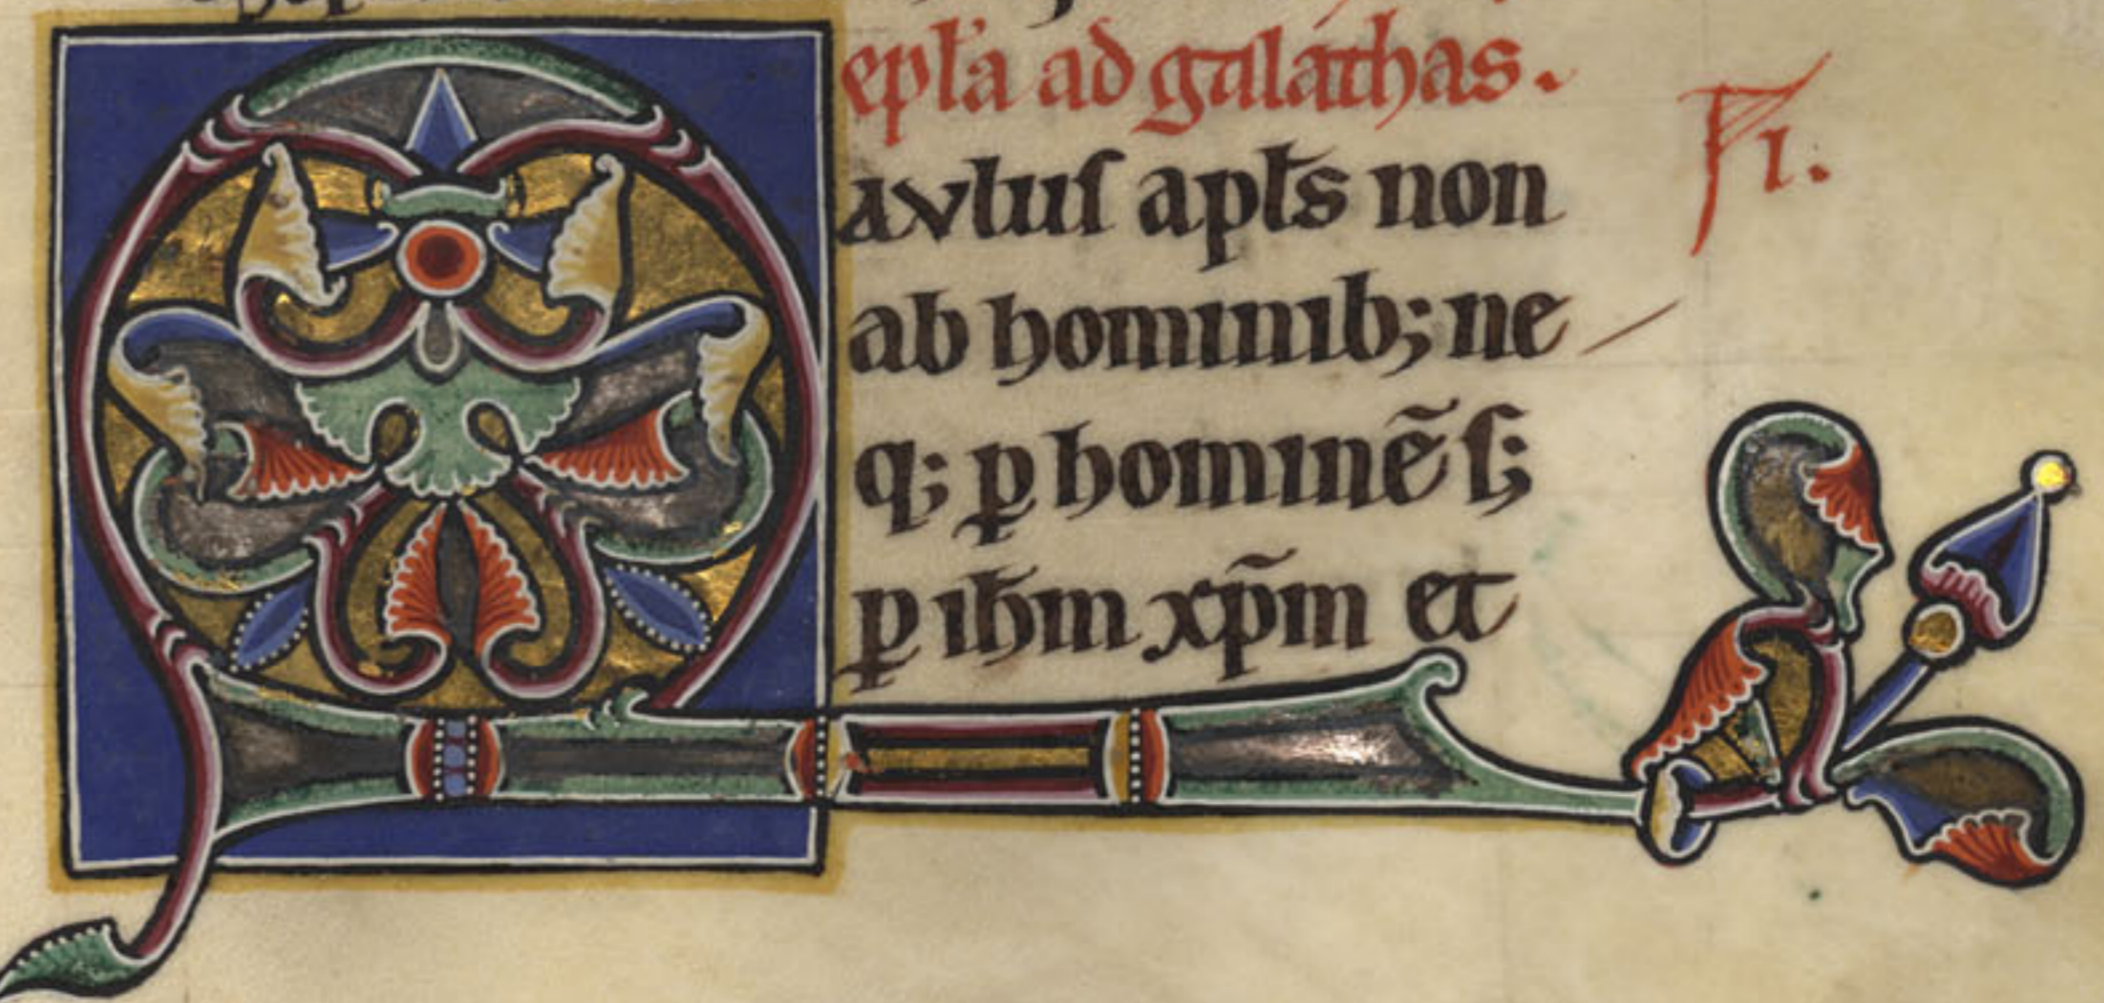 epl̃a ad galathas.
Fi.
Pavluſ apl̃s non
ab hominib; ne
q; ꝑ hominẽ ſ;
ꝑ ih̃m xp̃m et